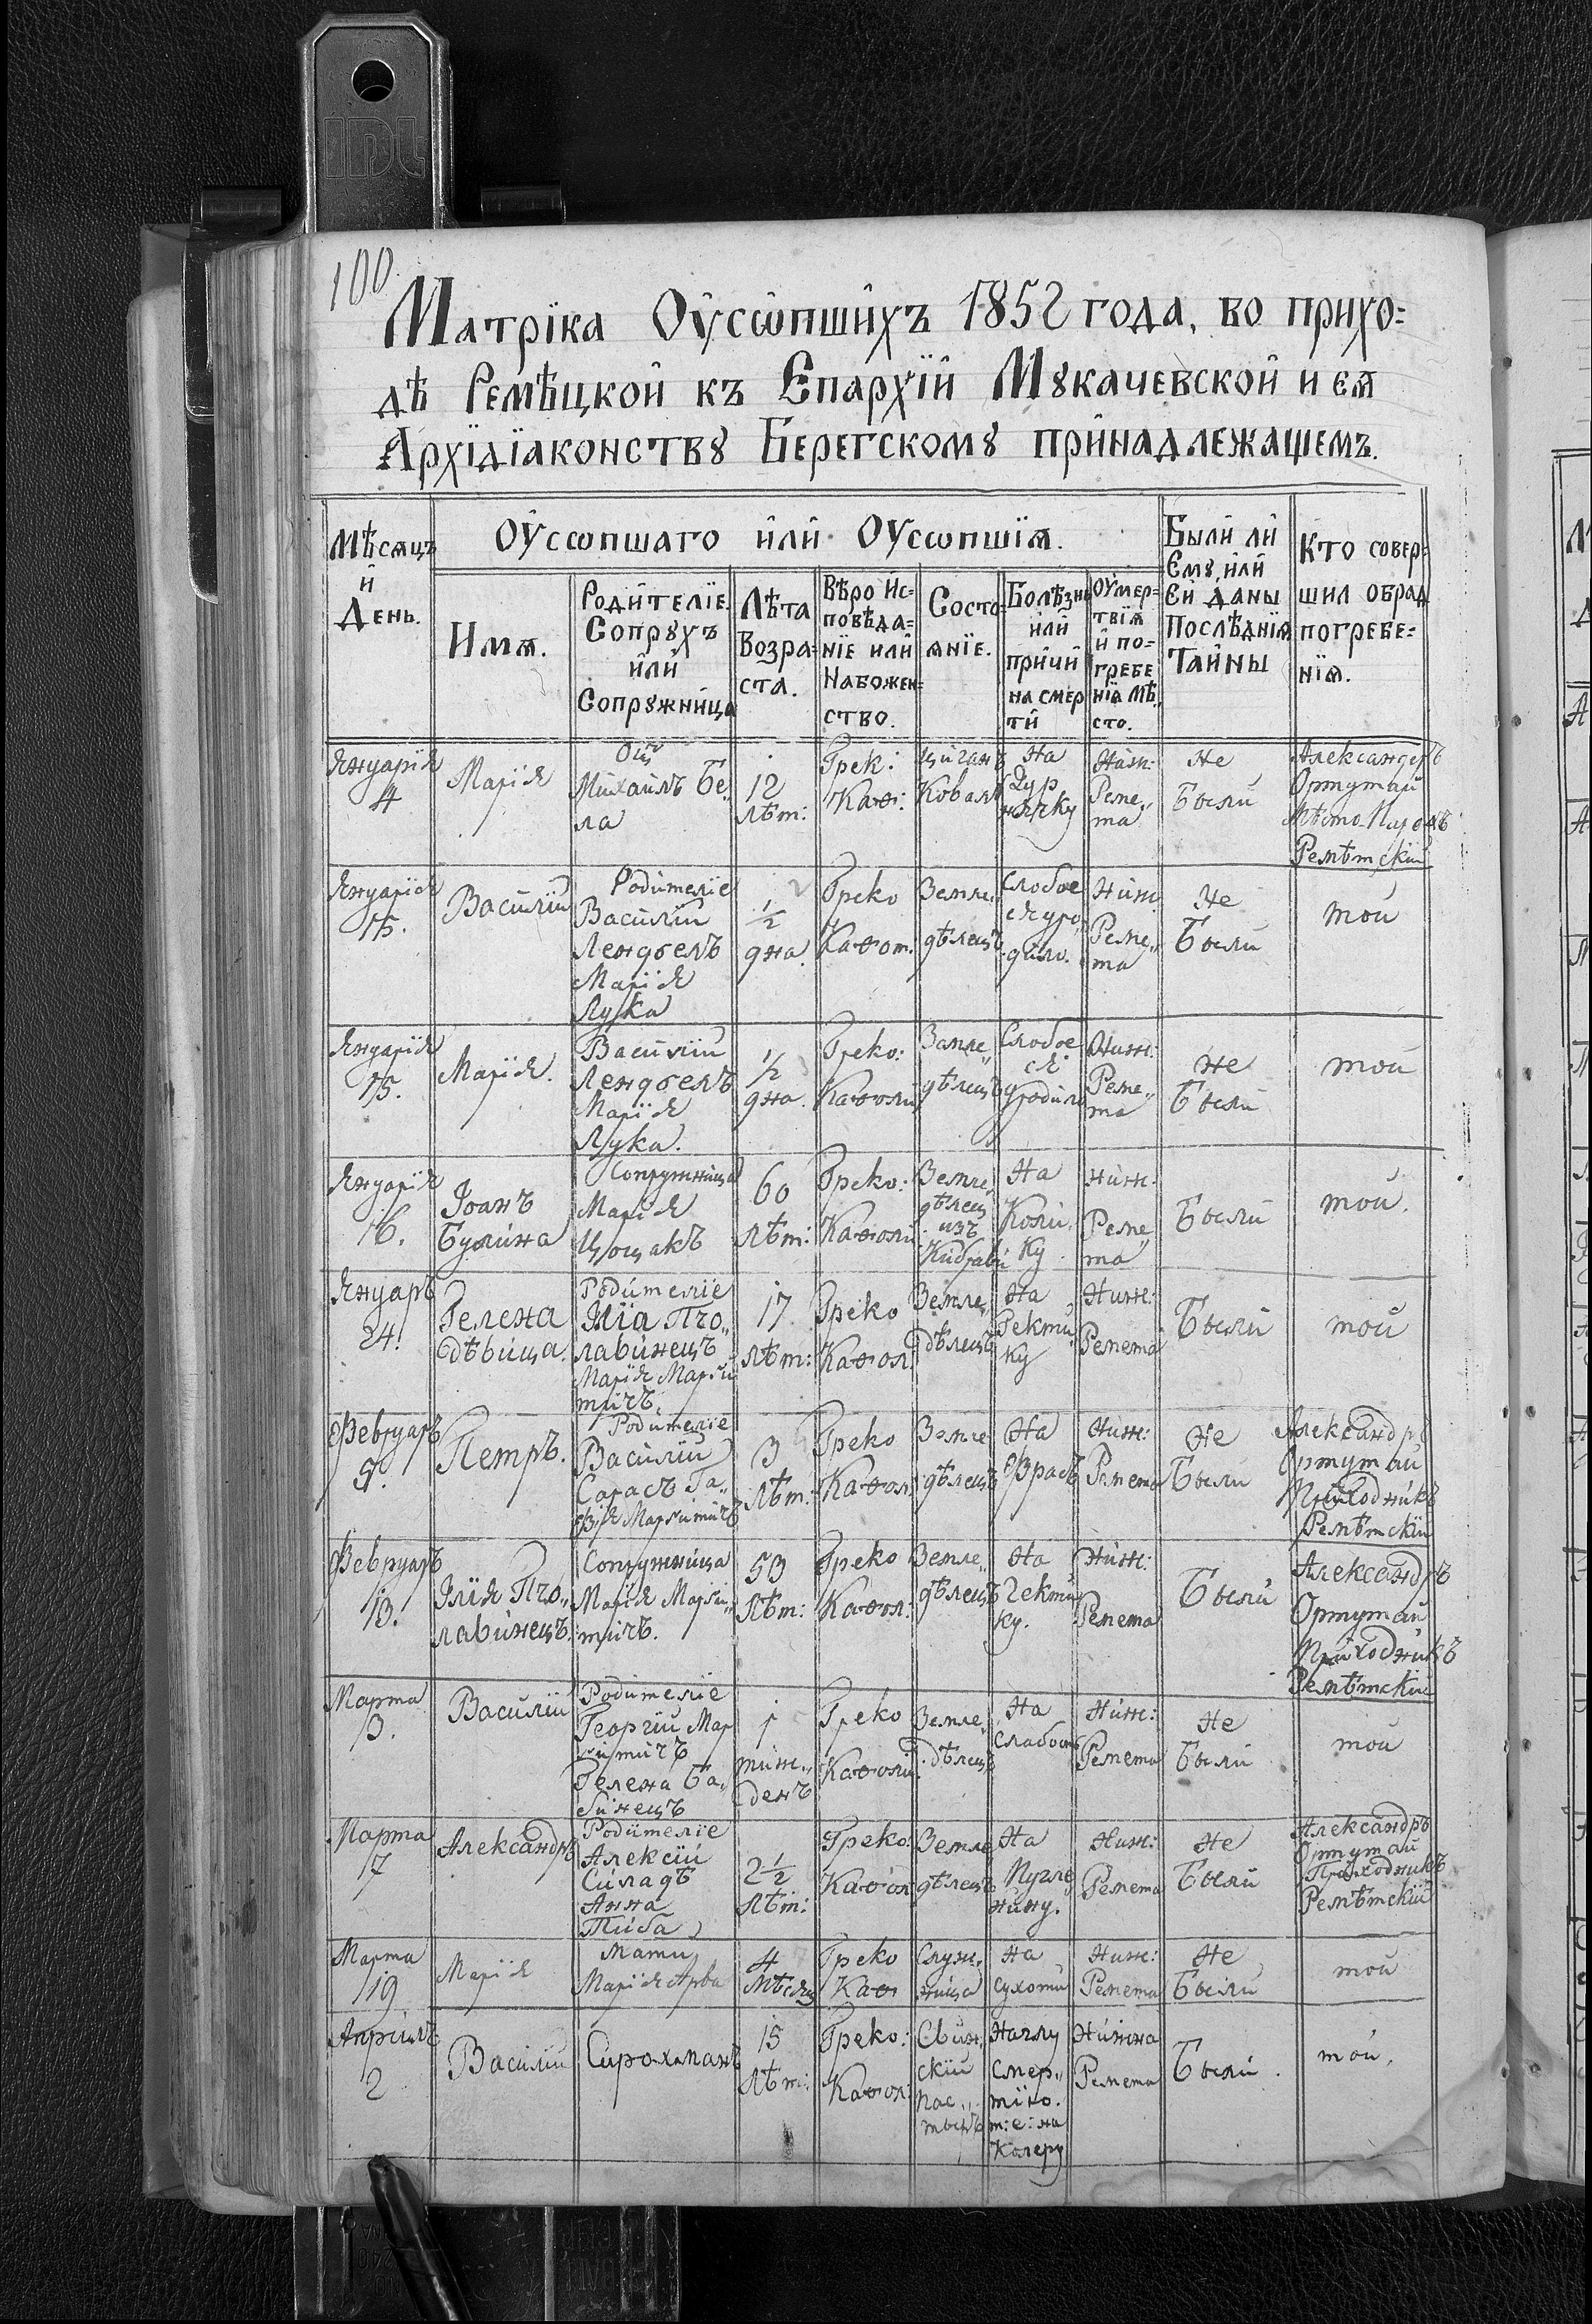 100
Матрїка Оусѡпшихъ 1852 года, во прихо=
дѣ Ремѣцкой къ Епархїй Мꙋкачевской и еѧ
Архїдїаконствꙋ Берегскомꙋ принадлежащемъ.
Мѣсѧцъ
и
День.
Оусѡпшаго или Оусѡпшїѧ.
Имѧ.
Родителїе.
Сопрꙋхъ
или
Сопрꙋжница
Лѣта
Возра=
ста.
Вѣро Ис=
повѣда=
нїе или
Набожен=
ство.
Состо
ѧнїе.
Болѣзнь
или
причи
на смер
ти
Оумер=
твїѧ
и по=
гребе
нїѧ мѣ
сто.
Были ли
Емꙋ, или
Ей даны
Послѣднїѧ
Тайны
Кто совер=
шил обрад
погребе=
нїѧ.
Януарїя
4
Марїя
Оц
Михаилъ Бе„
ла
12
лѣт:
Грек:
Каѳ:
Циганъ
Коваль
На
Ниж:
Реме„
та
Не
Были
Александеръ
Ортутай
Мѣсто-Парохъ
Ремѣтскїй
Януарїя
15.
Василїй
Родителїе
Василїй
Лендѣелъ
Марїя
Лука
1/2
дна.
Греко
Каѳол.
Земле„
дѣлецъ
Слобое
ся уро„
дило.
Ниж:
Реме„
та
Не
Были
той
Януарїя
15.
Марїя.
Василїй
Лендѣелъ
Марїя
Лука.
1/2
дна.
Греко:
Каѳоли
Земле„
дѣлецъ
Слобое
ся
уродило
Ниж:
Реме„
та
Не
Были
той
Януарїя
16.
Іоанъ
Сопружница
Марїя
60
лѣт:
Греко:
Каѳоли
Земле„
дѣлец
изъ
На
Коли„
ку.
Ниж:
Реме„
та
Были
той.
Януаръ
24.
Гелена
дѣвица.
Родителїе
Илїа Пчо„
лавинецъ
Марїя Марги
тичъ.
17
лѣт:
Греко
Каѳол:
Земле„
дѣлецъ
На
Гекти„
ку
Ниж:
Ремета
Были
той
Февруаръ
9.
Петръ.
Родителїе
Василїй
3
лѣт:
Греко
Каѳол:
Земле
дѣлецъ
На
Фрасъ
Ниж:
Ремета
Не
Были
Александръ
Ортутай
Приходникъ
Ремѣтскїй
Февруаръ
13.
Ілїя Пчо„
лавинецъ.
Сопружница
Марїя Марги„
тичъ.
53
лѣт:
Греко
Каѳол:
Земле„
дѣлецъ
На
Гекти
ку.
Ниж:
Ремета
Были
Александръ
Ортутай
Приходникъ
Ремѣтскїй
Марта
3.
Василїй
Родителїе
Георгїй Мар
гитичъ
Гелена Ба„
бинецъ
1
тиж„
денъ
Греко
Каѳоли
Земле„
дѣлецъ
На
Слабость
Ниж:
Ремета
Не
Были
той
Марта
7
Александръ
Родителїе
Алексїй
Силадѣ
Анна
Тиба
2 1/2
лѣт:
Греко:
Каѳол
Земле
дѣлецъ
На
Ниж:
Ремета
Не
Были
Александръ
Ортутай
Приходникъ
Ремѣтскїй
Марта
19.
Марїя
Мати
Марїя
4
Мѣсяц
Греко
Каѳ
Служ„
ница
На
Сухоти
Ниж:
Ремета
Не
Были
той
Априлъ
2
Василїй
Сирохманъ
15
лѣт:
Греко:
Каѳол:
Свин„
скїй
пас„
тыръ
Наглу
Смер„
тїю.
т: е: на
Колеру
Нижна
Ремета
Были.
той.